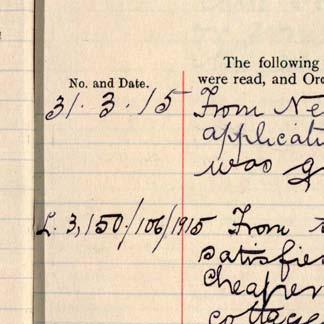 The following
No. and Date.
were read, and Ord
31. 3. 15 From Ne
applicati
was g
L. 3,150/106/1915 From t
satisfie
cheaper
cottage